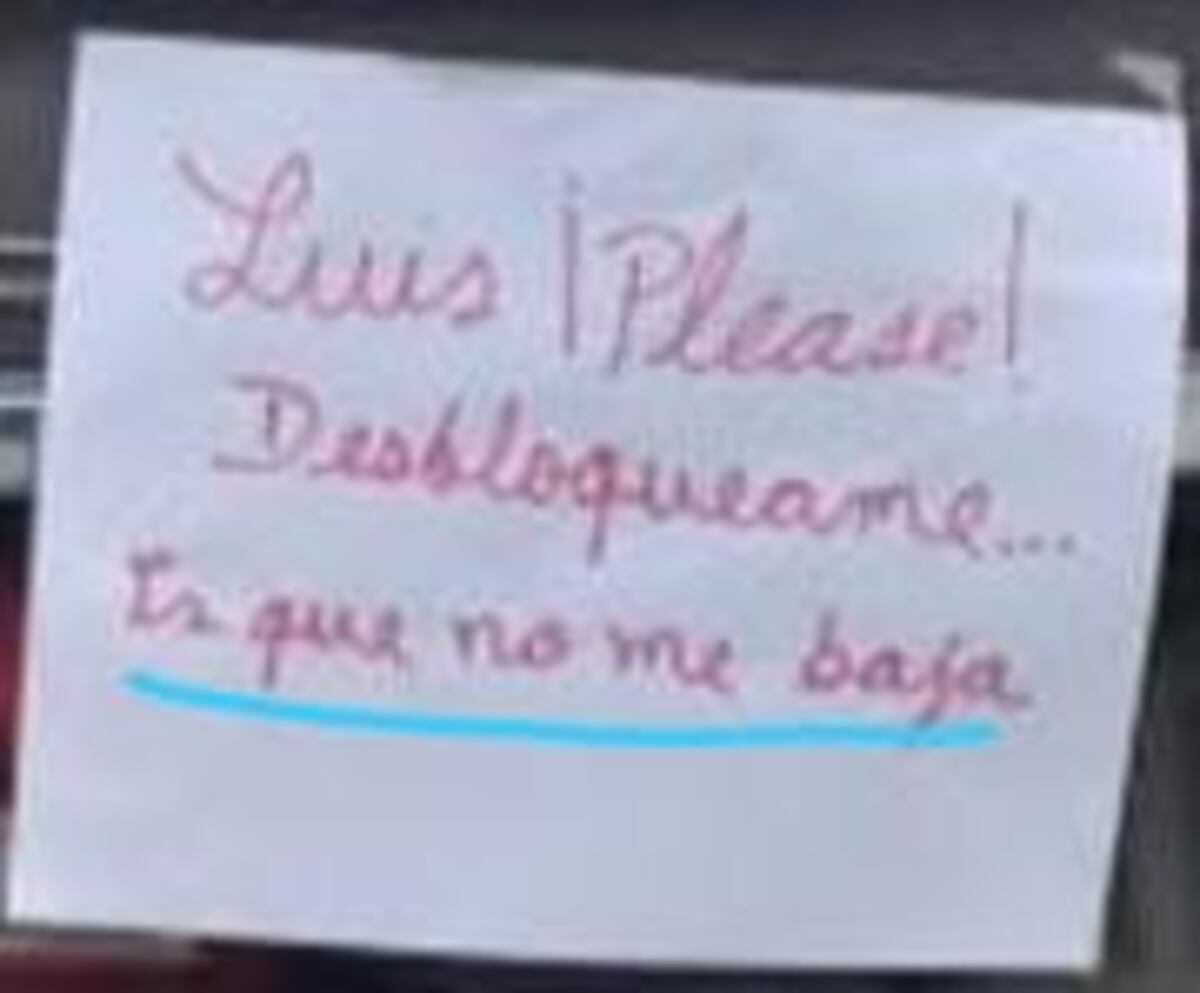 Luis ¡Please!
Desbloqueame...
Es que no me baja